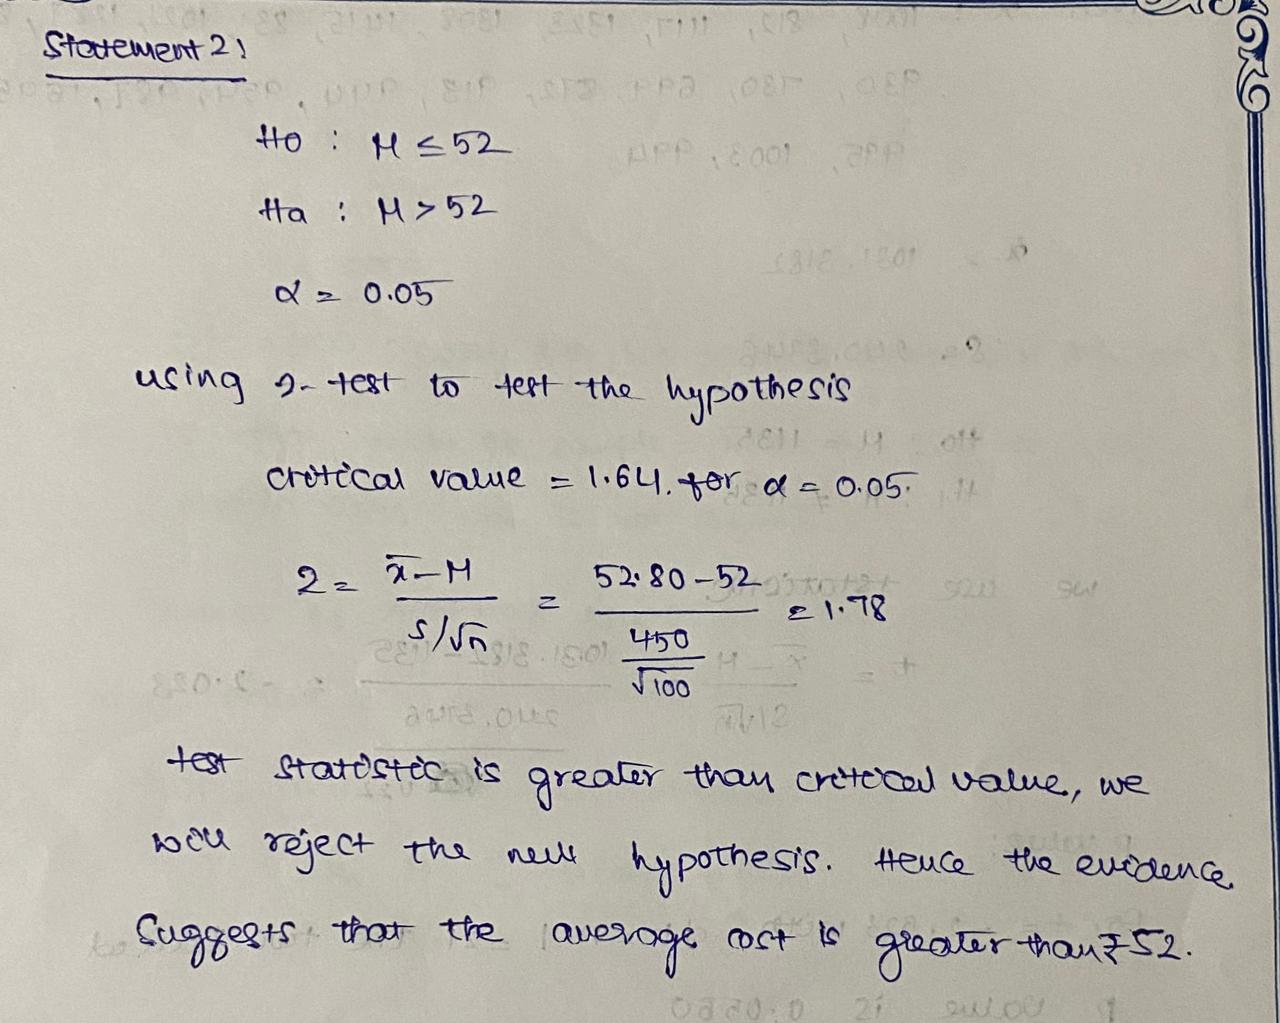 Statement 2:
H0 : μ ≤ 52
Ha : μ > 52
α = 0.05
using z-test to test the hypothesis
critical value = 1.64. for α = 0.05.
z = x̄-μ / s/√n = 52.80-52 / 450/√100 = 1.78
test statistic is greater than critical value, we
will reject the null hypothesis. Hence the evidence
suggests that the average cost is greater than ₹52.